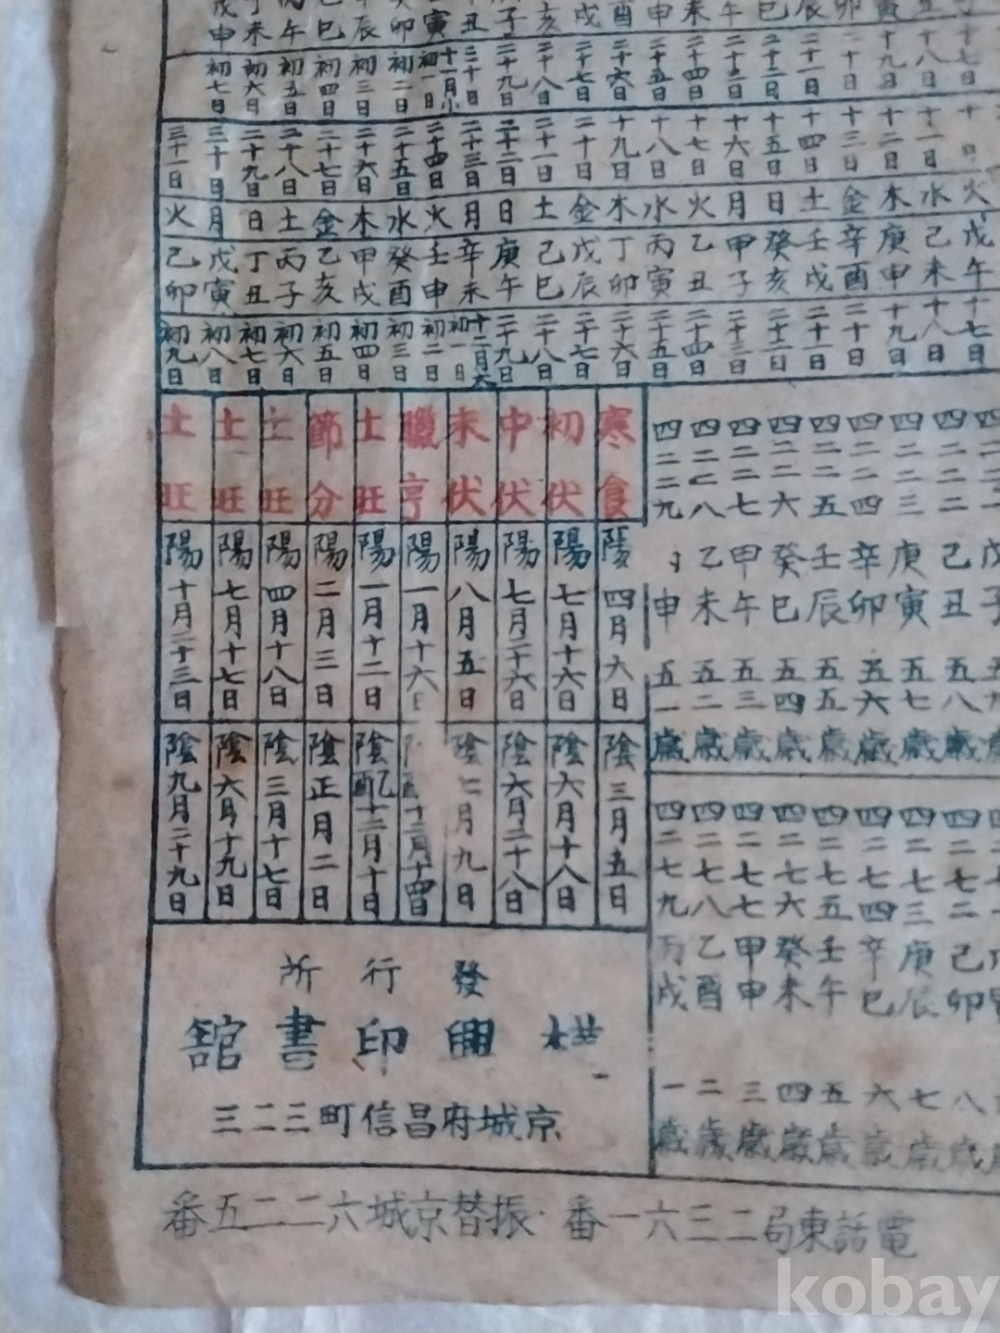 申 未 午 巳 辰 卯 寅 丑 子 亥 戌 酉 申 未 午 巳 辰 卯 寅
十七日 十八日 十九日 二十日 二十一日 二十二日 二十三日 二十四日 二十五日 二十六日 二十七日 二十八日 二十九日 三十日 十一月小初一日 初二日 初三日 初四日 初五日 初六日 初七日
十一日 十二日 十三日 十四日 十五日 十六日 十七日 十八日 十九日 二十日 二十一日 二十二日 二十三日 二十四日 二十五日 二十六日 二十七日 二十八日 二十九日 三十日 三十一日
火 水 木 金 土 日 月 火 水 木 金 土 日 月 火 水 木 金 土 日 月 火
戊午 己未 庚申 辛酉 壬戌 癸亥 甲子 乙丑 丙寅 丁卯 戊辰 己巳 庚午 辛未 壬申 癸酉 甲戌 乙亥 丙子 丁丑 戊寅 己卯
十七日 十八日 十九日 二十日 二十一日 二十二日 二十三日 二十四日 二十五日 二十六日 二十七日 二十八日 二十九日 十二月大初一日 初二日 初三日 初四日 初五日 初六日 初七日 初八日 初九日
四二二二 己丑 五八歳
四二二三 庚寅 五七歳
四二二四 辛卯 五六歳
四二二五 壬辰 五五歳
四二二六 癸巳 五四歳
四二二七 甲午 五三歳
四二二八 乙未 五二歳
四二二九 申 五一歳
四二七二 己卯 八歳
四二七三 庚辰 七歳
四二七四 辛巳 六歳
四二七五 壬午 五歳
四二七六 癸未 四歳
四二七七 甲申 三歳
四二七八 乙酉 二歳
四二七九 丙戌 一歳
寒食 陽四月六日 陰三月五日
初伏 陽七月十六日 陰六月十八日
中伏 陽七月二十六日 陰六月二十八日
末伏 陽八月五日 陰七月九日
臘亨 陽一月十六日 十二月十四日
土旺 陽一月十二日 陰乙酉十二月十日
節分 陽二月三日 陰正月二日
土旺 陽四月十八日 陰三月十七日
土旺 陽七月十七日 陰六月十九日
土旺 陽十月二十三日 陰九月二十九日
發行所
興印書舘
京城府昌信町三二三
電話東局二三六一番・振替京城六二二五番
kobay